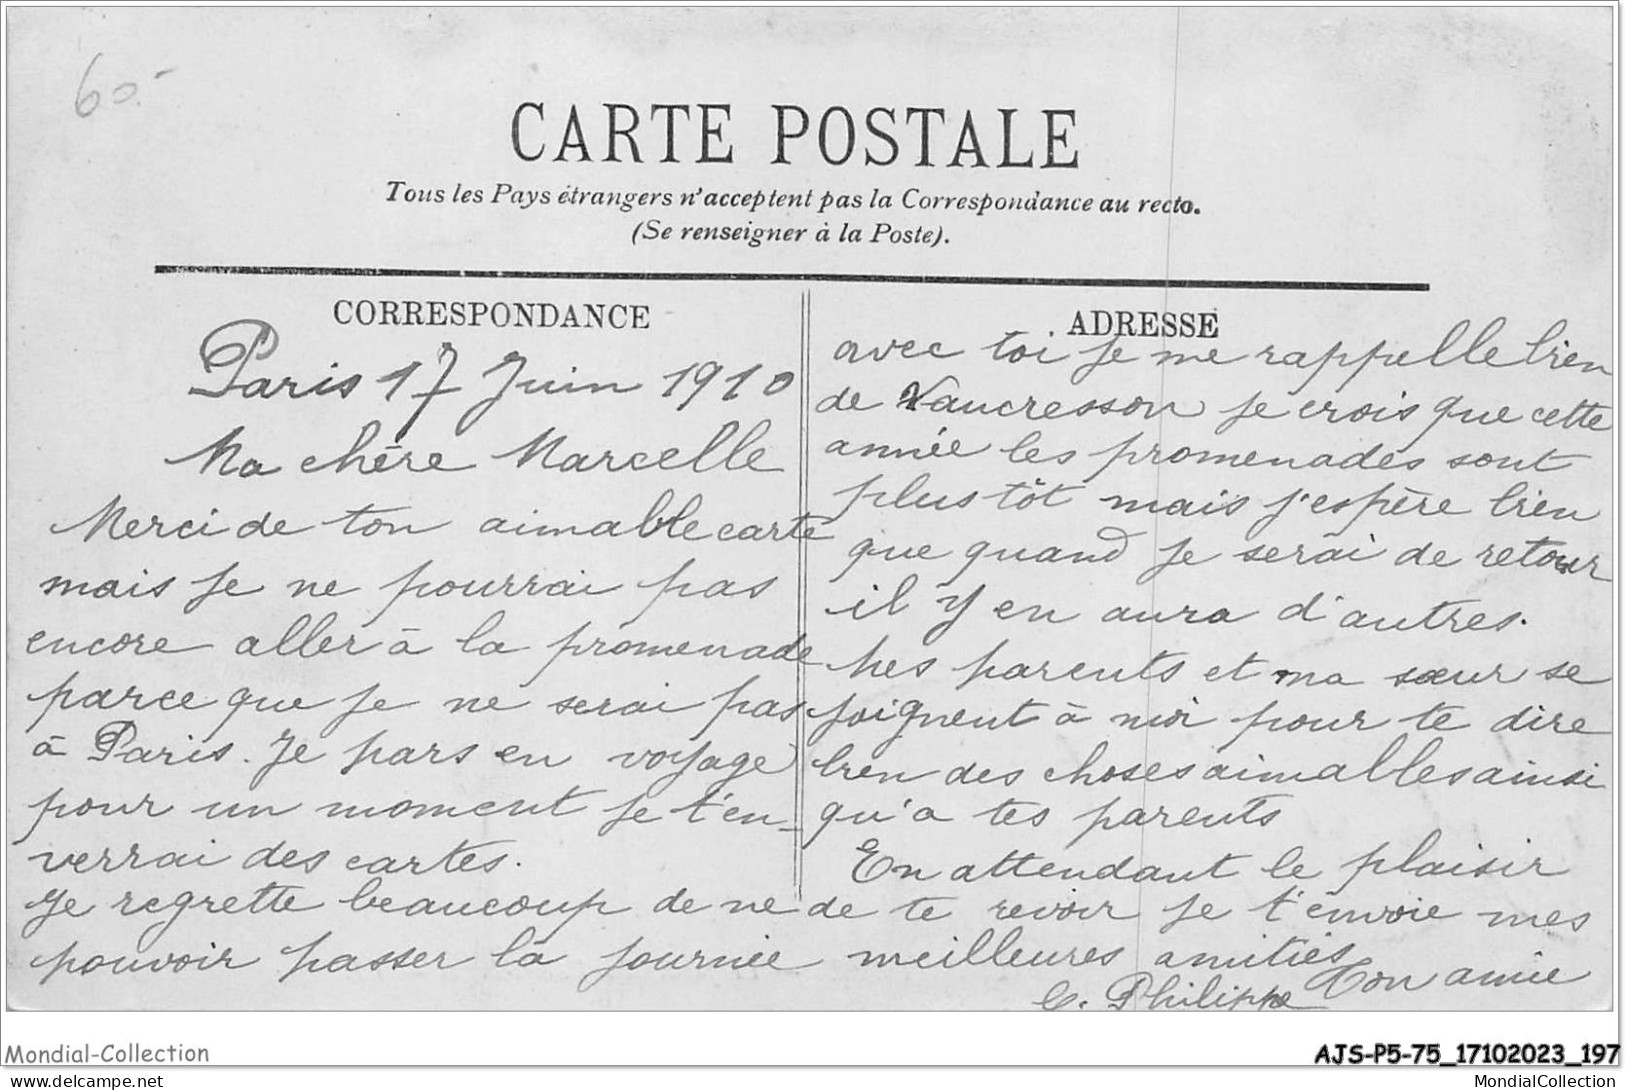 60.-
CARTE POSTALE
Tous les Pays étrangers n'acceptent pas la Correspondance au recto.
(Se renseigner à la Poste).
CORRESPONDANCE
Paris 17 Juin 1910
Ma chère Marcelle
Merci de ton aimable carte
mais je ne pourrai pas
encore aller à la promenade
parce que je ne serai pas
à Paris. Je pars en voyage
pour un moment je t'en-
verrai des cartes.
Je regrette beaucoup de ne
pouvoir passer la journée
ADRESSE
avec toi je me rappelle bien
de Vaucresson je crois que cette
année les promenades sont
plus tôt mais j'espère bien
que quand je serai de retour
il y en aura d'autres.
Mes parents et ma sœur se
joignent à moi pour te dire
bien des choses aimables ainsi
qu'a tes parents
En attendant le plaisir
de te revoir je t'envoie mes
meilleures amitiés
Ton amie
C. Philippe
Mondial-Collection
AJS-P5-75_17102023_197
delcampe.net
MondialCollection